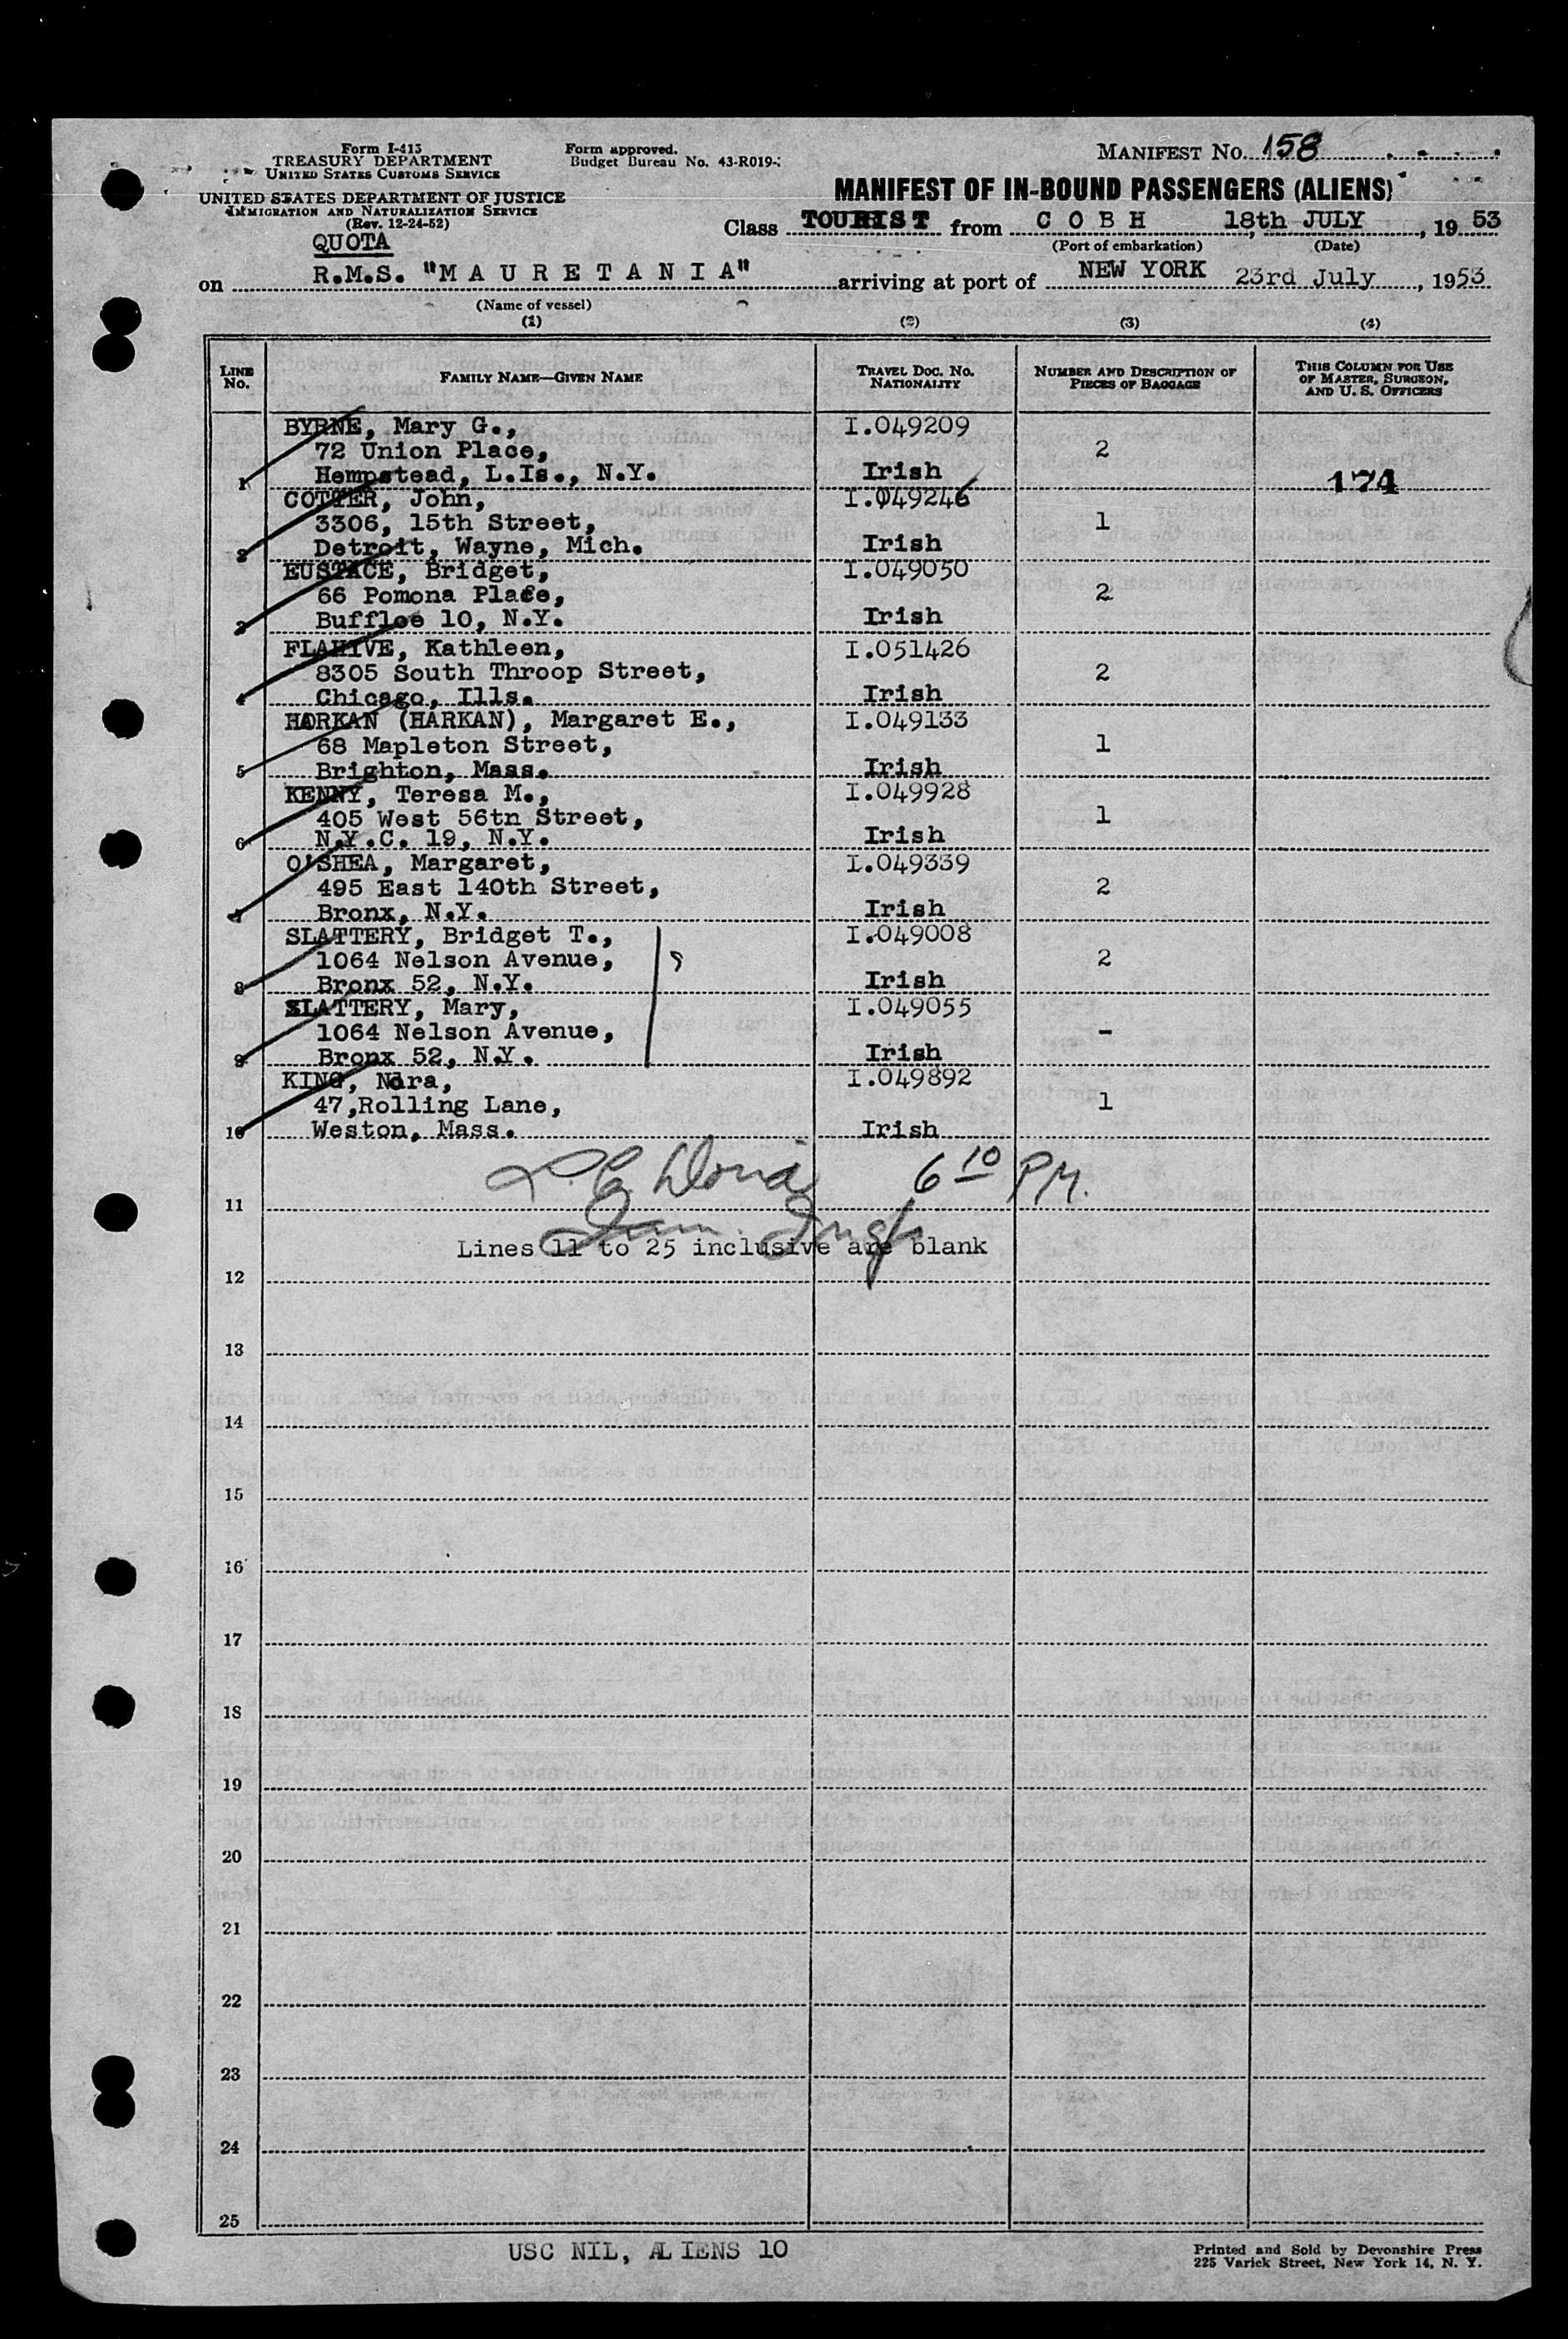 Form I-415
TREASURY DEPARTMENT
UNITED STATES CUSTOMS SERVICE
UNITED STATES DEPARTMENT OF JUSTICE
IMMIGRATION AND NATURALIZATION SERVICE
(Rev. 12-24-52)
Form approved.
Budget Bureau No. 43-R019-
MANIFEST NO. 158
MANIFEST OF IN-BOUND PASSENGERS (ALIENS)
Class TOURIST from C O B H 18th JULY, 19 53
(Port of embarkation) (Date)
QUOTA
on R.M.S. "M A U R E T A N I A" arriving at port of NEW YORK 23rd July, 1953
(Name of vessel)
(1) (2) (3) (4)
LINE NO. FAMILY NAME—GIVEN NAME TRAVEL DOC. NO. NATIONALITY NUMBER AND DESCRIPTION OF PIECES OF BAGGAGE THIS COLUMN FOR USE OF MASTER, SURGEON, AND U. S. OFFICERS
BYRNE, Mary G., I.049209
72 Union Place, 2
1 Hempstead, L.Is., N.Y. Irish 174
COTTER, John, I.049246
3306, 15th Street, 1
2 Detroit, Wayne, Mich. Irish
EUSTACE, Bridget, I.049050
66 Pomona Place, 2
3 Buffloe 10, N.Y. Irish
FLAHIVE, Kathleen, I.051426
8305 South Throop Street, 2
4 Chicago, Ills. Irish
HARKAN (HARKAN), Margaret E., I.049133
68 Mapleton Street, 1
5 Brighton, Mass. Irish
KENNY, Teresa M., I.049928
405 West 56tn Street, 1
6 N.Y.C. 19, N.Y. Irish
O'SHEA, Margaret, I.049339
495 East 140th Street, 2
7 Bronx, N.Y. Irish
SLATTERY, Bridget T., I.049008
1064 Nelson Avenue, 2
8 Bronx 52, N.Y. Irish
SLATTERY, Mary, I.049055
1064 Nelson Avenue, -
9 Bronx 52, N.Y. Irish
KING, Nora, I.049892
47,Rolling Lane, 1
10 Weston, Mass. Irish
6 10 PM.
11
Lines 11 to 25 inclusive are blank
12
13
14
15
16
17
18
19
20
21
22
23
24
25
USC NIL, ALIENS 10
Printed and Sold by Devonshire Press
225 Varick Street, New York 14, N. Y.